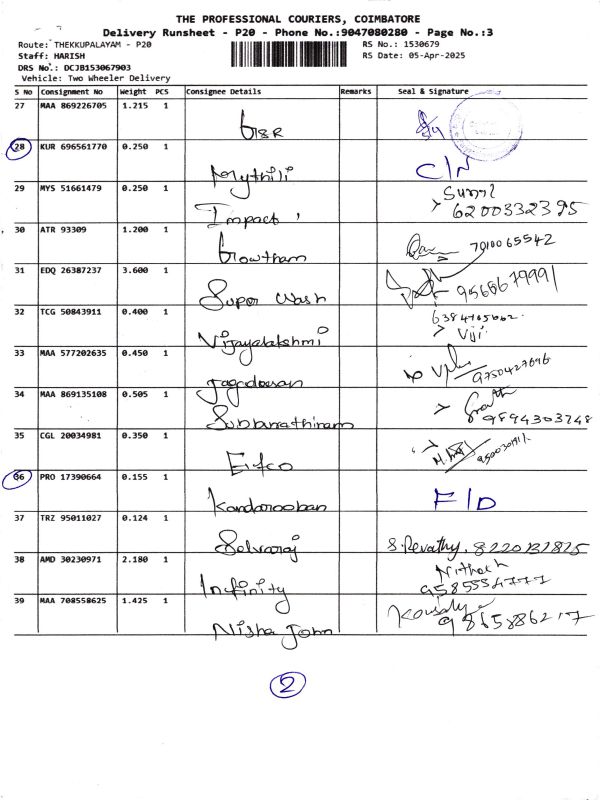 THE PROFESSIONAL COURIERS, COIMBATORE
Delivery Runsheet - P20 - Phone No.:9047080280 - Page No.:3
Route: THEKKUPALAYAM - P20 RS No.: 1530679
Staff: HARISH RS Date: 05-Apr-2025
DRS No.: DCJB153067903
Vehicle: Two Wheeler Delivery
S No Consignment No Weight PCS Consignee Details Remarks Seal & Signature
27 MAA 869226705 1.215 1
28 KUR 696561770 0.250 1 Mythili C/N
29 MYS 51661479 0.250 1 Impact Sunil
6200332395
30 ATR 93309 1.200 1 Gowtham 7010065542
31 EDQ 26387237 3.600 1 Super Wash 9568679991
32 TCG 50843911 0.400 1 Vijayalakshmi Viji
33 MAA 577202635 0.450 1 Jagadeesan 9750427696
34 MAA 869135108 0.505 1 9894303748
35 CGL 20034981 0.350 1
36 PRO 17390664 0.155 1 Kandarooban F/D
37 TRZ 95011027 0.124 1 Selvaraj S. Revathy. 8220137825
38 AMD 30230971 2.180 1 Infinity
39 MAA 708558625 1.425 1 Nisha John 9865886217
2